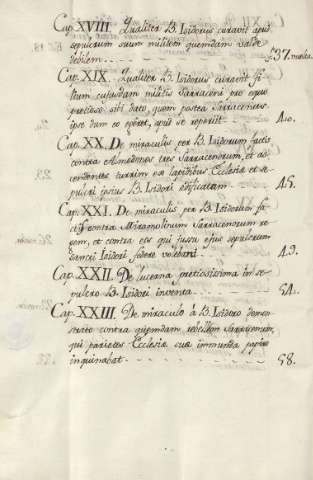 Cap. XVIII. Qualiter B. Isidorus curavit apud
sepulcrum suum militem quemdam valde
debilem. 37.
Cap. XIX. Qualiter B. Isidorus curavit fi-
lium cujusdam militis Sarraceni pro equo
pretioso sibi dato, quem postea Sarracenus
ipse dum eo egeret, apud se reperiit 40.
Cap. XX. De miraculis per B. Isidorum factis
contra tres Sarracenorum, et as-
cendentes turrim ex lapidibus Ecclesiæ et se-
pulcri ipsius B. Isidori edificatam 45.
Cap. XXI. De miraculis per B. Isidorum fac-
tis contra Miramolinum Sarracenorum re-
gem, et contra eos qui jussu ejus sepulcrum
Sancti Isidori fodere volebant 49.
Cap. XXII. De lucerna pretiosissima in se-
pulcro B. Isidori inventa 54.
Cap. XXIII. De miraculo á B. Isidoro demon-
strato contra quemdam rebellem Sarracenum,
qui parietes Ecclesiæ sua immunda
inquinabat 58.